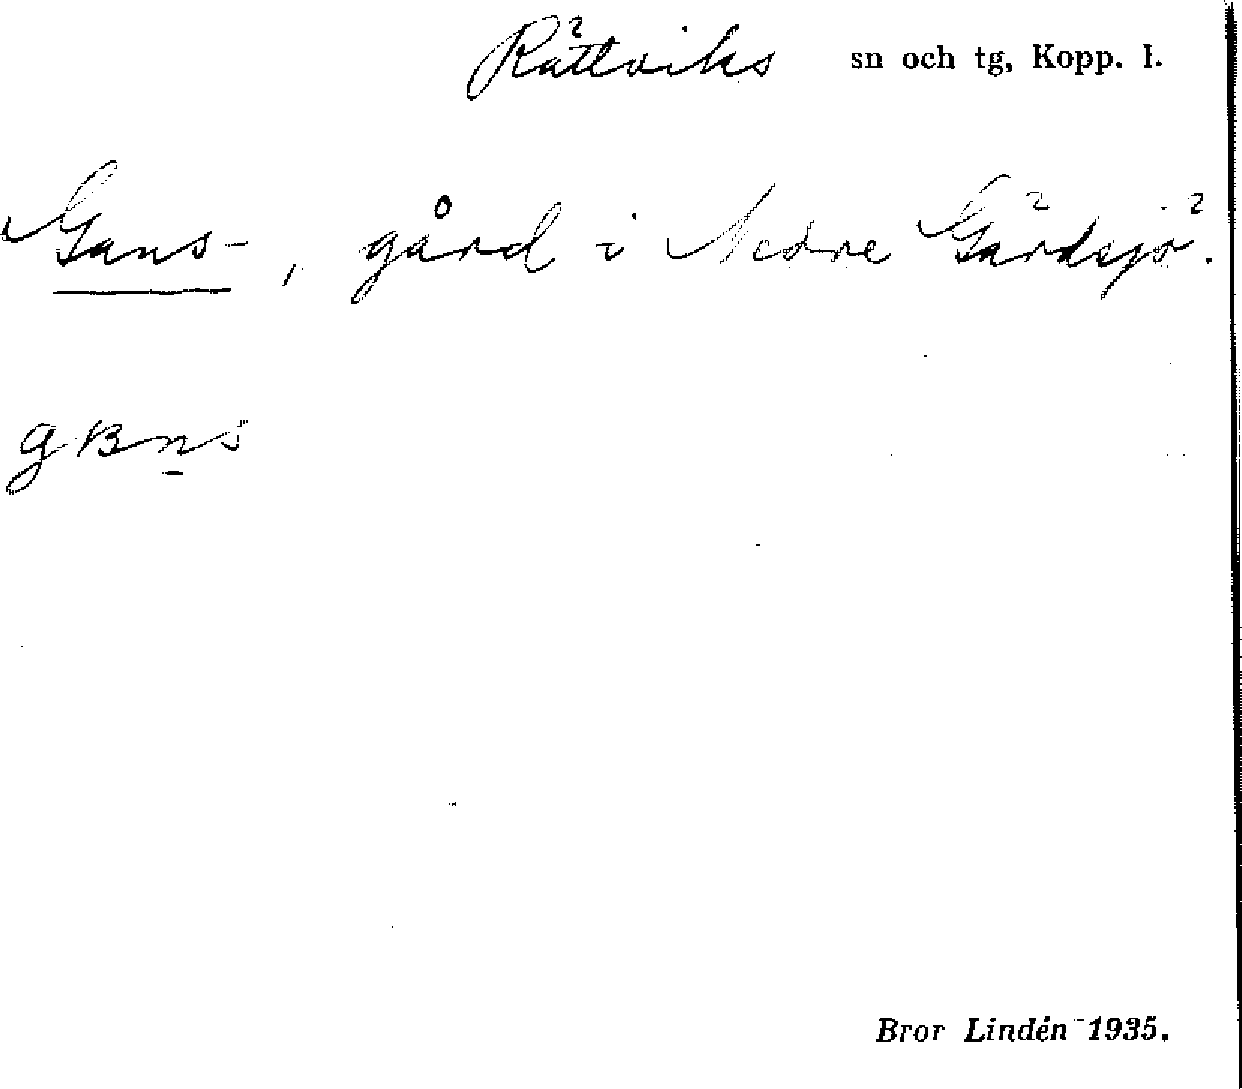 Rättviks sn och tg, Kopp. l.
Gans-, gård i Nedre Gärdsjö.
gʙns
Bror Lindén 1935.